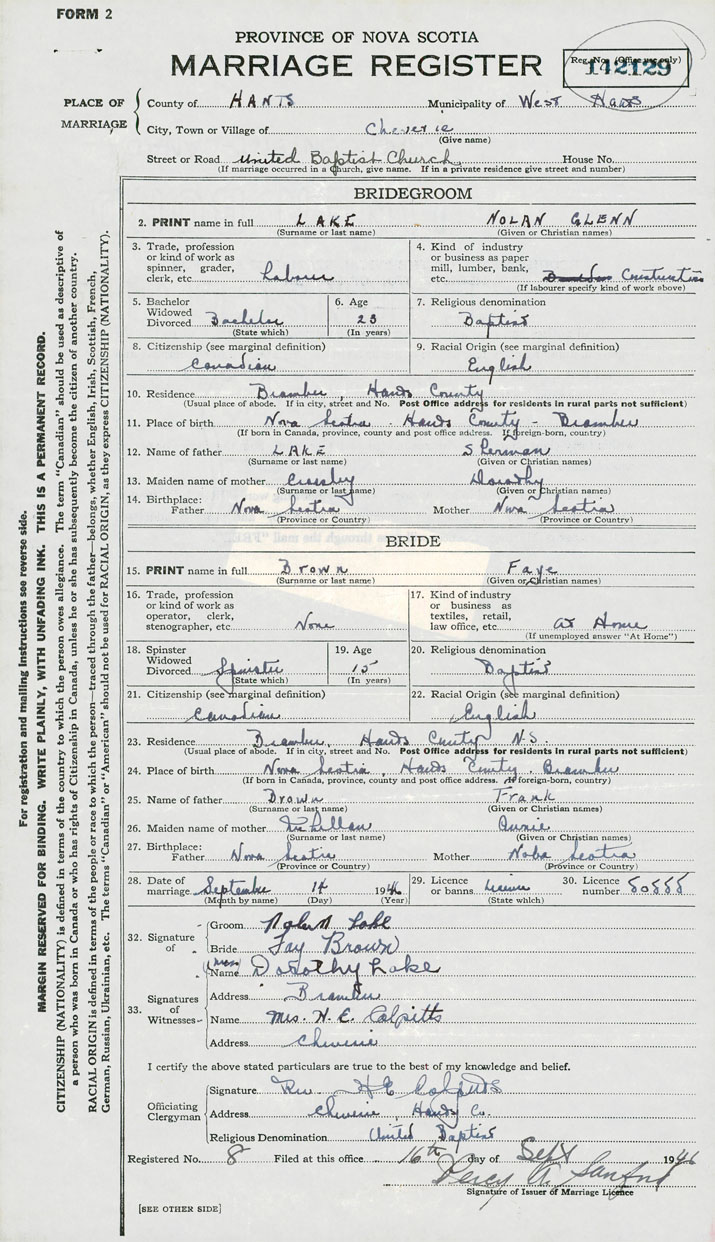 FORM 2
PROVINCE OF NOVA SCOTIA
MARRIAGE REGISTER
Reg. No. (Office use only)
142129
PLACE OF MARRIAGE
County of HANTS Municipality of West Hants
City, Town or Village of Cheverie
(Give name)
Street or Road United Baptist Church House No.
(If marriage occurred in a church, give name. If in a private residence give street and number)
BRIDEGROOM
2. PRINT name in full LAKE NOLAN GLENN
(Surname or last name) (Given or Christian names)
3. Trade, profession or kind of work as spinner, grader, clerk, etc. Labour
4. Kind of industry or business as paper mill, lumber, bank, etc. Construction
(If labourer specify kind of work above)
5. Bachelor Widowed Divorced Bachelor
(State which)
6. Age 23
(In years)
7. Religious denomination
Baptist
8. Citizenship (see marginal definition)
Canadian
9. Racial Origin (see marginal definition)
English
10. Residence Bramber, Hants County
(Usual place of abode. If in city, street and No. Post Office address for residents in rural parts not sufficient)
11. Place of birth Nova Scotia Hants County - Bramber
(If born in Canada, province, county and post office address. If foreign-born, country)
12. Name of father LAKE Sherman
(Surname or last name) (Given or Christian names)
13. Maiden name of mother Crossley Dorothy
(Surname or last name) (Given or Christian names)
14. Birthplace:
Father Nova Scotia Mother Nova Scotia
(Province or Country) (Province or Country)
BRIDE
15. PRINT name in full Brown Faye
(Surname or last name) (Given or Christian names)
16. Trade, profession or kind of work as operator, clerk, stenographer, etc. None
17. Kind of industry or business as textiles, retail, law office, etc. At Home
(If unemployed answer "At Home")
18. Spinster Widowed Divorced Spinster
(State which)
19. Age 15
(In years)
20. Religious denomination
Baptist
21. Citizenship (see marginal definition)
Canadian
22. Racial Origin (see marginal definition)
English
23. Residence Bramber, Hants County N.S.
(Usual place of abode. If in city, street and No. Post Office address for residents in rural parts not sufficient)
24. Place of birth Nova Scotia, Hants County. Bramber
(If born in Canada, province, county and post office address. If foreign-born, country)
25. Name of father Brown Frank
(Surname or last name) (Given or Christian names)
26. Maiden name of mother Annie
(Surname or last name) (Given or Christian names)
27. Birthplace:
Father Nova Scotia Mother Nova Scotia
(Province or Country) (Province or Country)
28. Date of marriage September 14 1946
(Month by name) (Day) (Year)
29. Licence or banns. License
(State which)
30. Licence number 50555
32. Signature of
Groom Lake
Bride Fay Brown
33. Signatures of Witnesses
(Mrs) Name Dorothy Lake
Address Bramber
Name Mrs. H. E. Colpitts
Address Cheverie
I certify the above stated particulars are true to the best of my knowledge and belief.
Officiating Clergyman
Signature Rev H E Colpitts
Address Cheverie, Hants Co.
Religious Denomination United Baptist
Registered No. 8 Filed at this office 16th day of Sept 1946
Percy A. Sanford
Signature of Issuer of Marriage Licence
[SEE OTHER SIDE]
For registration and mailing instructions see reverse side.
MARGIN RESERVED FOR BINDING. WRITE PLAINLY, WITH UNFADING INK. THIS IS A PERMANENT RECORD.
CITIZENSHIP (NATIONALITY) is defined in terms of the country to which the person owes allegiance. The term "Canadian" should be used as descriptive of
a person who was born in Canada or who has rights of Citizenship in Canada, unless he or she has subsequently become the citizen of another country.
RACIAL ORIGIN is defined in terms of the people or race to which the person—traced through the father—belongs, whether English, Irish, Scottish, French,
German, Russian, Ukrainian, etc. The terms "Canadian" or "American" should not be used for RACIAL ORIGIN, as they express CITIZENSHIP (NATIONALITY).